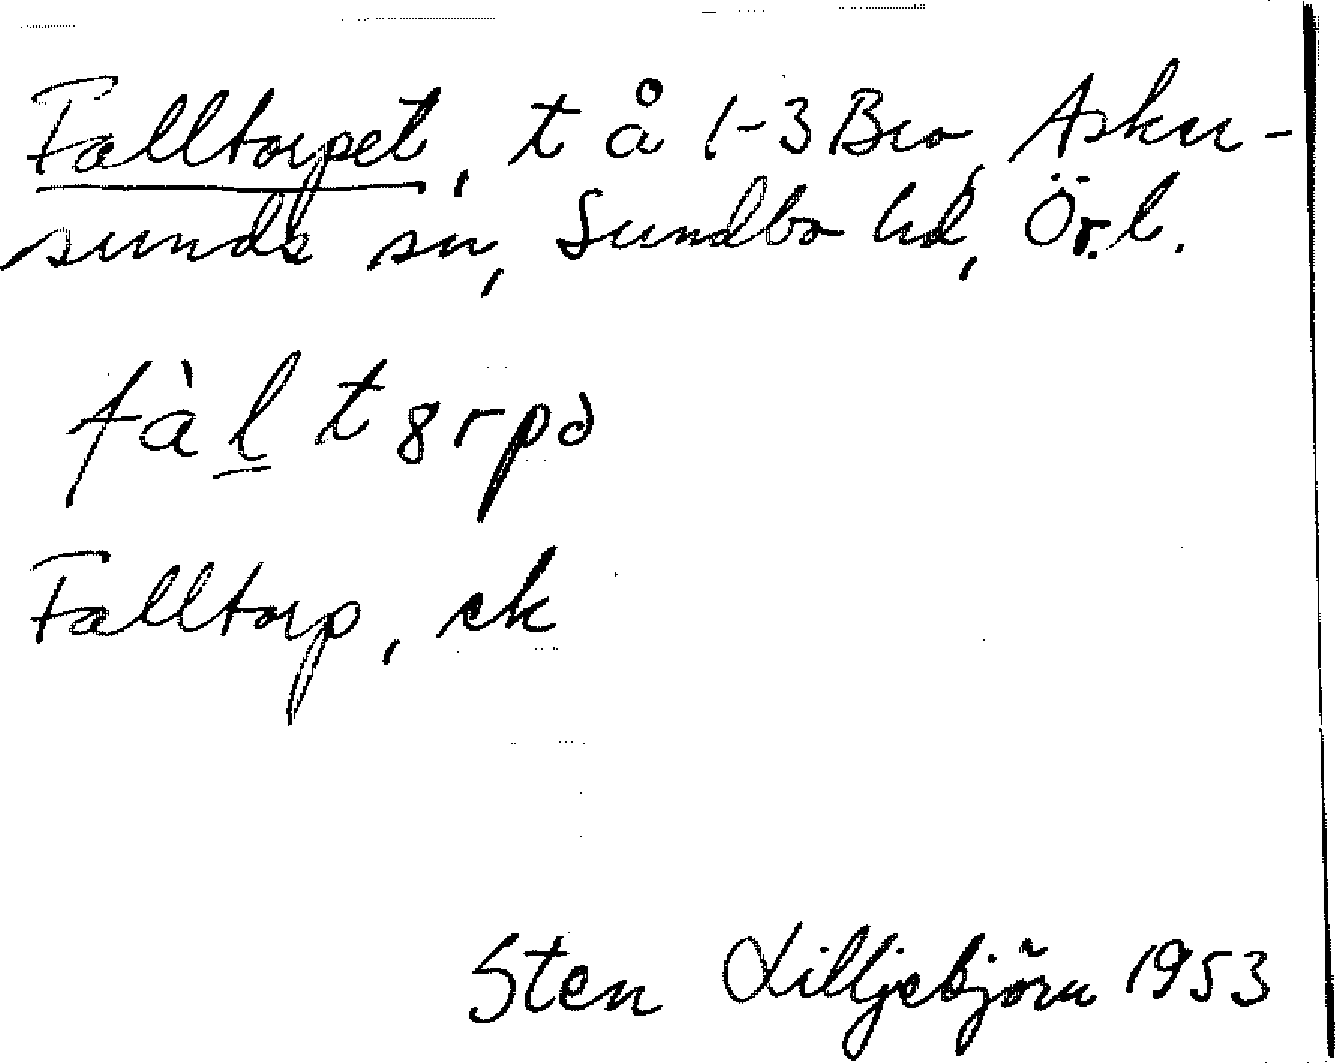 Falltorpet, t å 1-3 Bro, Asker-
sunds sn, Sundbo hd, Ör.l.
fàl̲t8rpə
Falltorp, ek
Sten Liljebjörn 1953